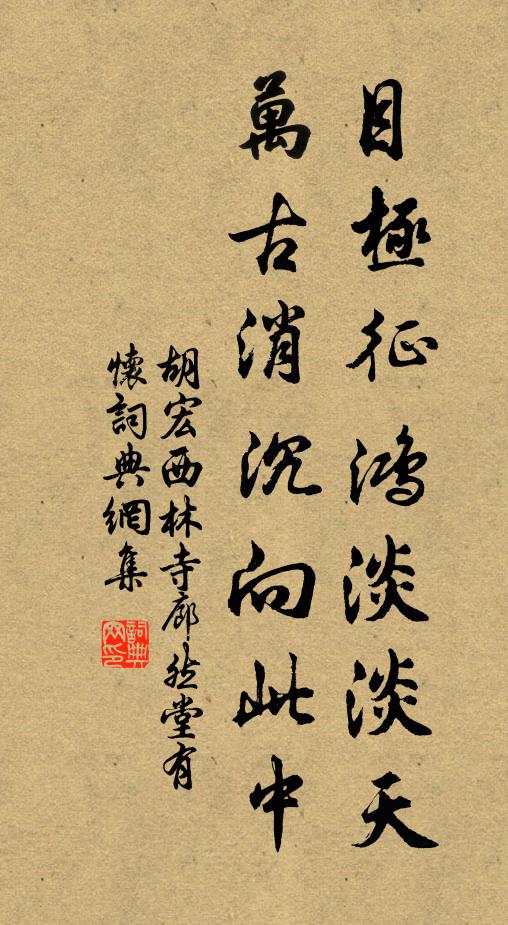 目極征鴻淡淡天
萬古消沉向此中
胡宏西林寺廊然堂有
懷詞典網集
詞典
网印